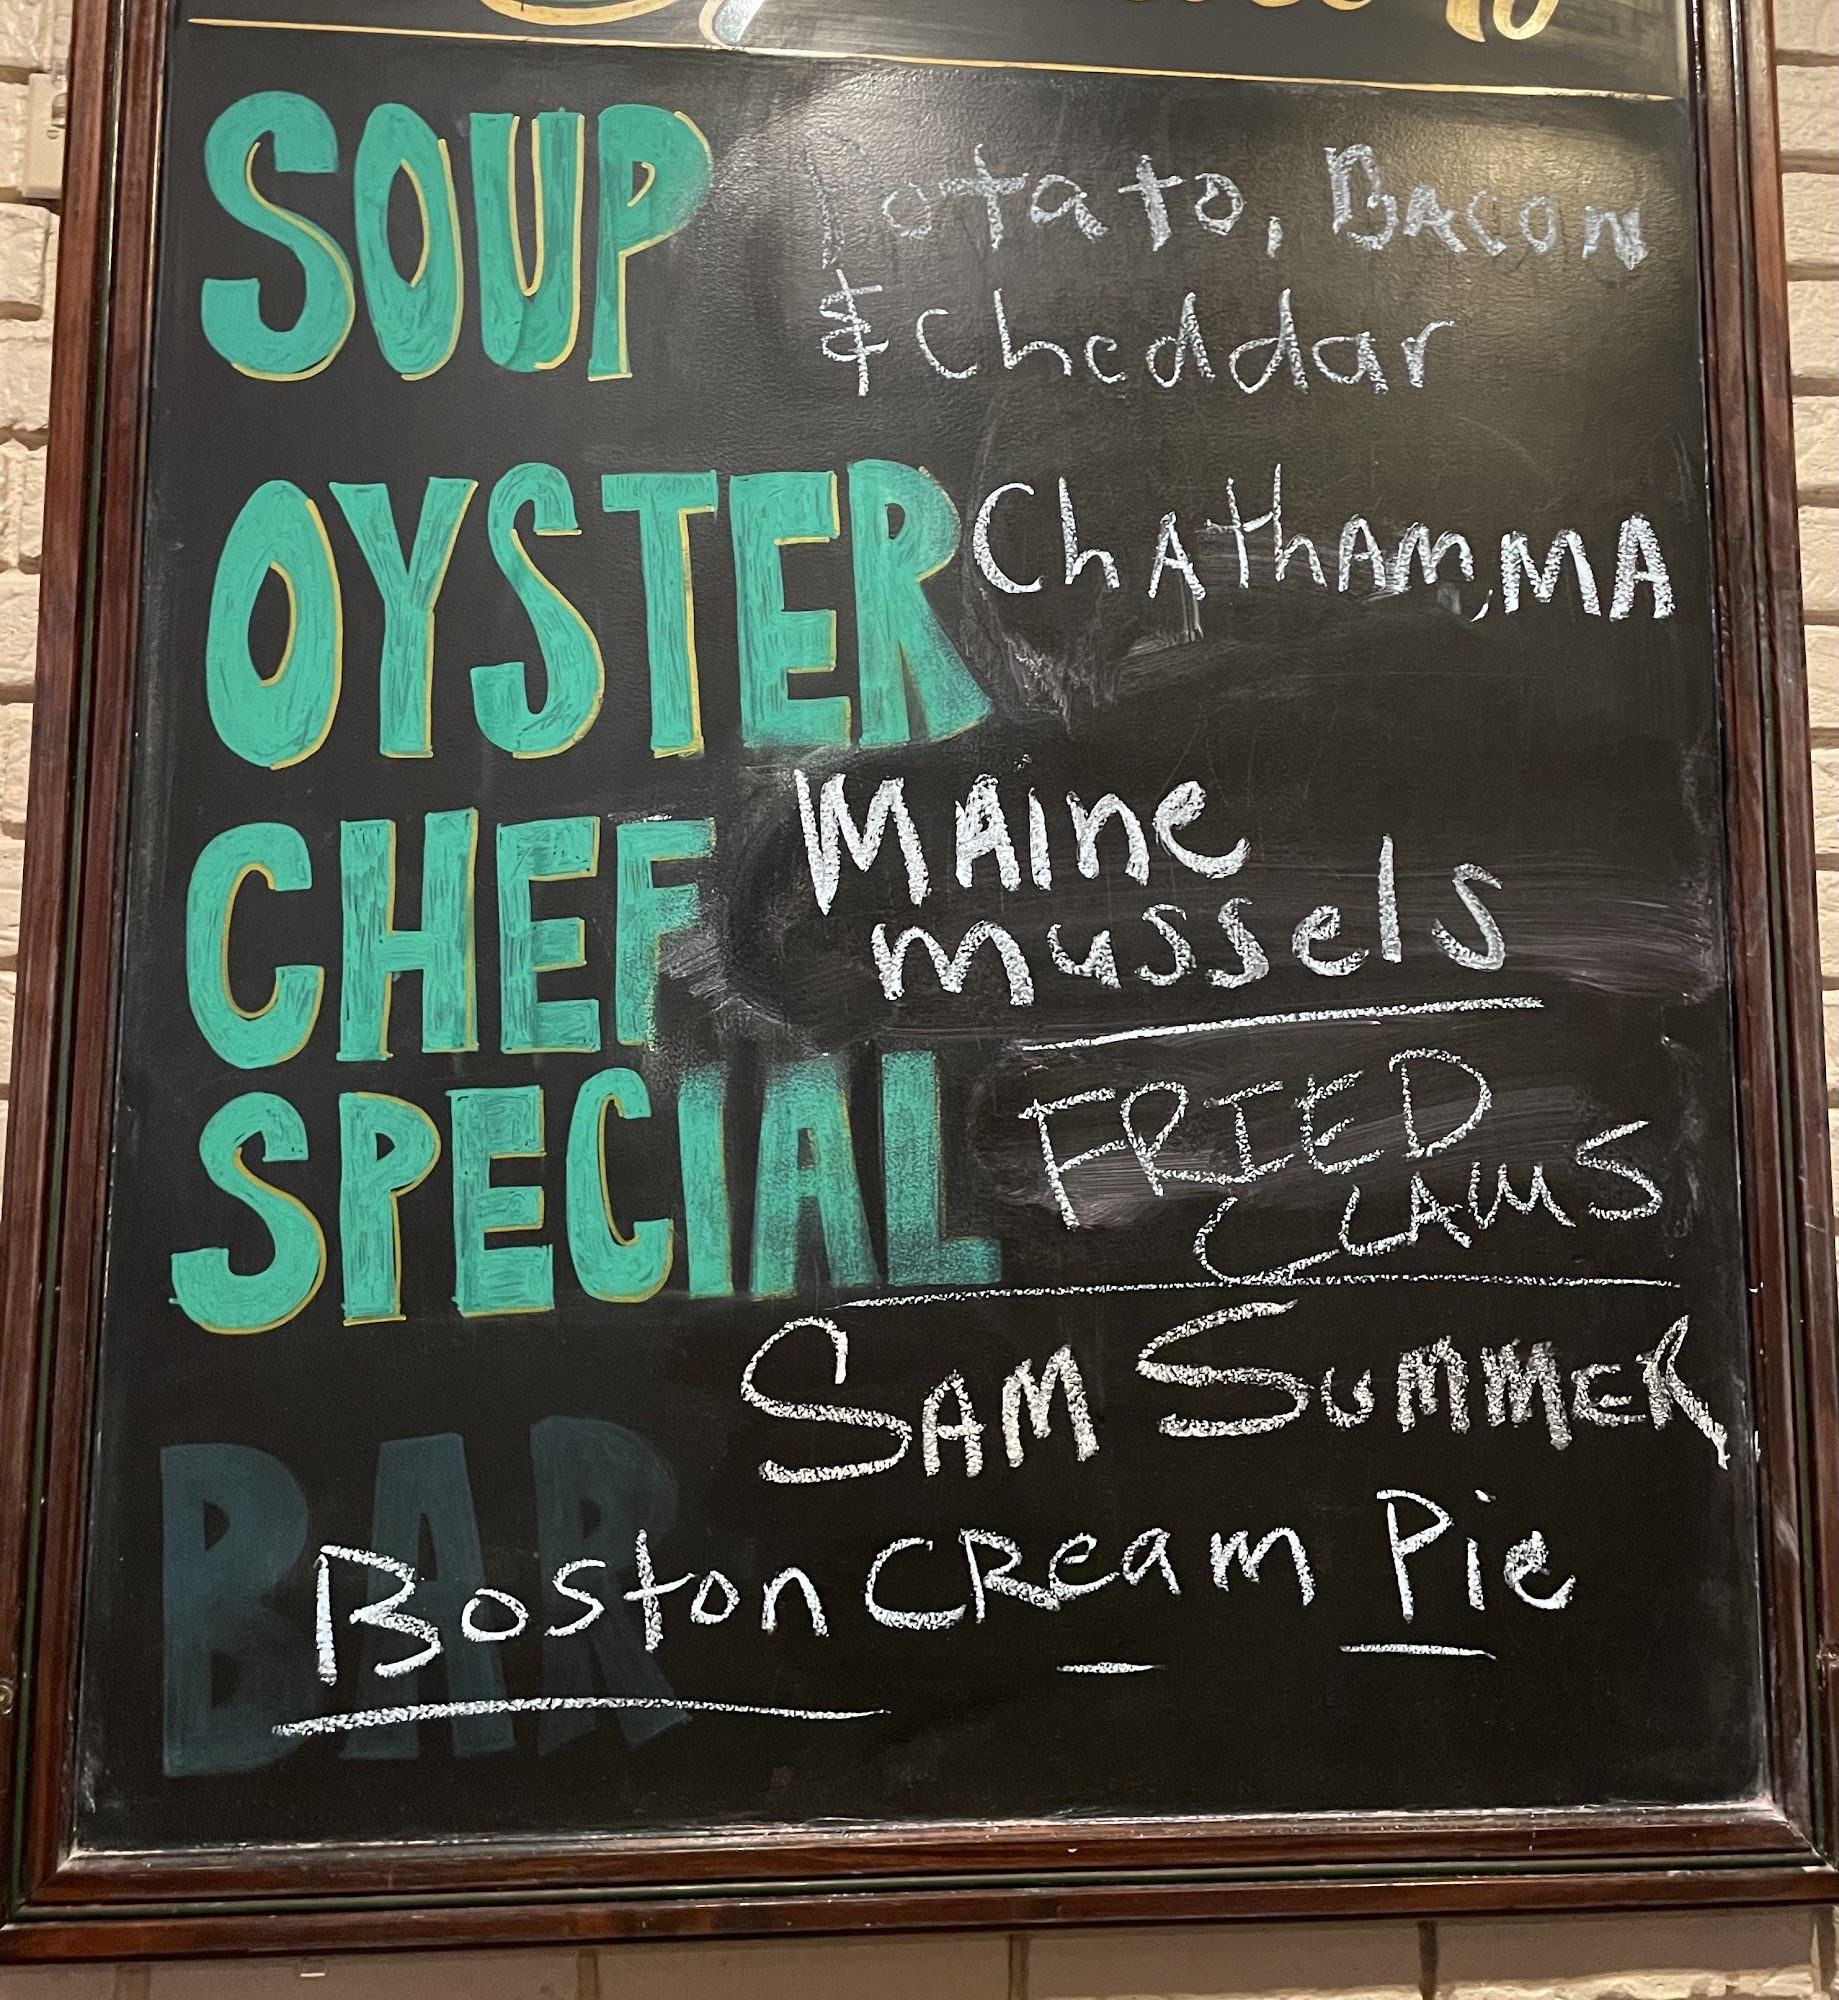 SOUP Potato, BACON
& cheddar
OYSTER ChAthAm, MA
CHEF MAine
mussels
SPECIAL FRIED
CLAMS
SAM SUMMER
BAR
Boston CReam Pie